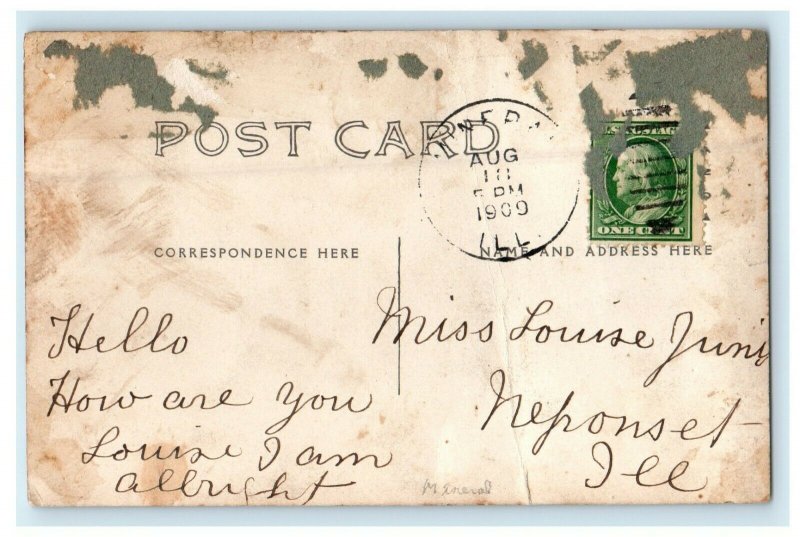 POST CARD
AUG
18
5 PM
1909
ILL.
ONE CENT
CORRESPONDENCE HERE
NAME AND ADDRESS HERE
Hello
How are you
Louise I am
allright
Miss Louise
Neponset
Ill